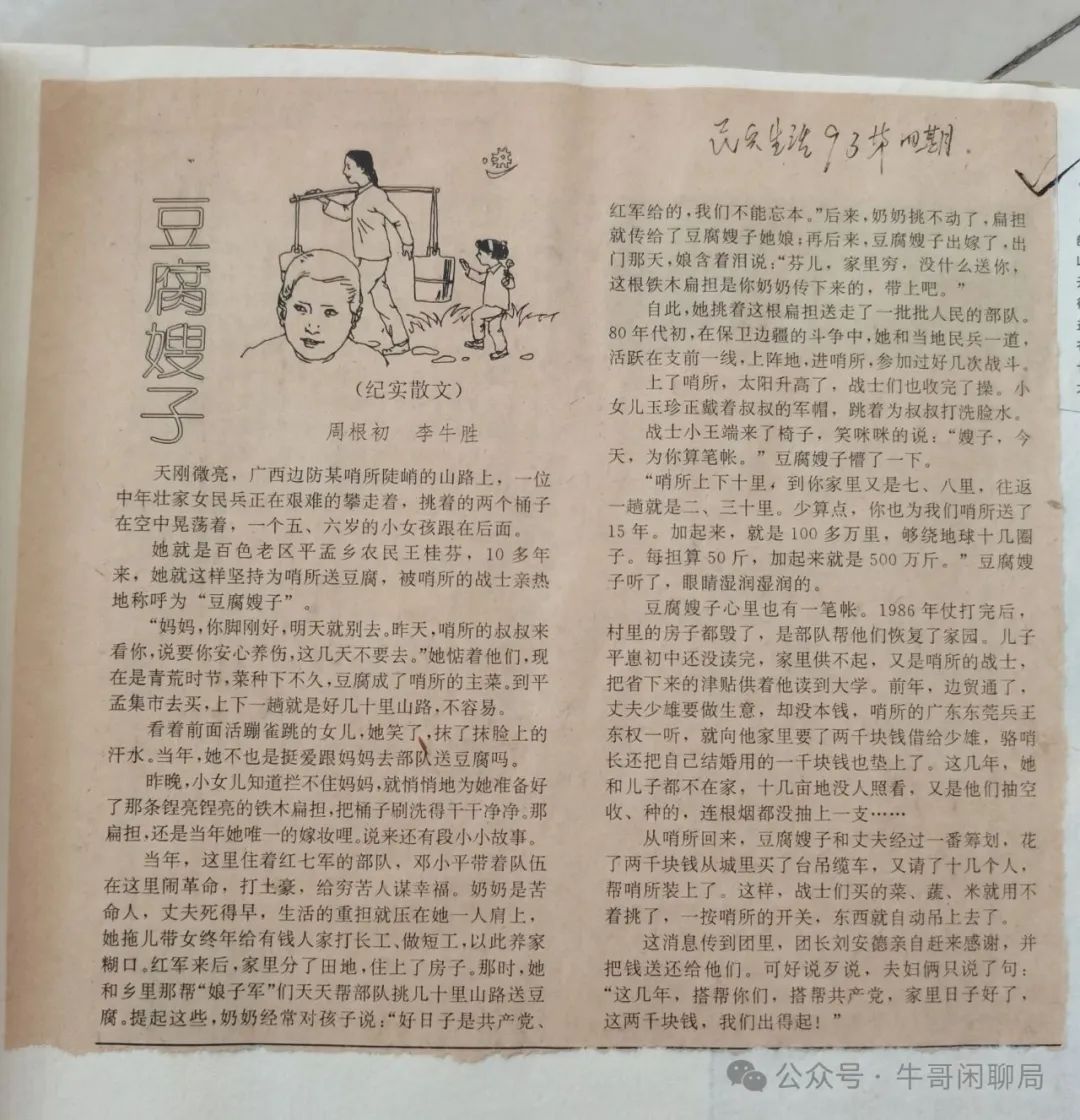 豆腐嫂子
民兵生活93第四期.
(纪实散文)
周根初 李牛胜
天刚微亮，广西边防某哨所陡峭的山路上，一位
中年壮家女民兵正在艰难的攀走着，挑着的两个桶子
在空中晃荡着，一个五、六岁的小女孩跟在后面。
她就是百色老区平孟乡农民王桂芬，10多年
来，她就这样坚持为哨所送豆腐，被哨所的战士亲热
地称呼为“豆腐嫂子”。
“妈妈，你脚刚好，明天就别去。昨天，哨所的叔叔来
看你，说要你安心养伤，这几天不要去。”她惦着他们，现
在是青荒时节，菜种下不久，豆腐成了哨所的主菜。到平
孟集市去买，上下一趟就是好几十里山路，不容易。
看着前面活蹦雀跳的女儿，她笑了，抹了抹脸上的
汗水。当年，她不也是挺爱跟妈妈去部队送豆腐吗。
昨晚，小女儿知道拦不住妈妈，就悄悄地为她准备好
了那条锃亮锃亮的铁木扁担，把桶子刷洗得干干净净。那
扁担，还是当年她唯一的嫁妆哩。说来还有段小小故事。
当年，这里住着红七军的部队，邓小平带着队伍
在这里闹革命，打土豪，给穷苦人谋幸福。奶奶是苦
命人，丈夫死得早，生活的重担就压在她一人肩上，
她拖儿带女终年给有钱人家打长工、做短工，以此养家
糊口。红军来后，家里分了田地，住上了房子。那时，她
和乡里那帮“娘子军”们天天帮部队挑几十里山路送豆
腐。提起这些，奶奶经常对孩子说：“好日子是共产党、
红军给的，我们不能忘本。”后来，奶奶挑不动了，扁担
就传给了豆腐嫂子她娘；再后来，豆腐嫂子出嫁了，出
门那天，娘含着泪说：“芬儿，家里穷，没什么送你，
这根铁木扁担是你奶奶传下来的，带上吧。”
自此，她挑着这根扁担送走了一批批人民的部队。
80年代初，在保卫边疆的斗争中，她和当地民兵一道，
活跃在支前一线，上阵地，进哨所，参加过好几次战斗。
上了哨所，太阳升高了，战士们也收完了操。小
女儿玉珍正戴着叔叔的军帽，跳着为叔叔打洗脸水。
战士小王端来了椅子，笑咪咪的说：“嫂子，今
天，为你算笔帐。”豆腐嫂子懵了一下。
“哨所上下十里，到你家里又是七、八里，往返
一趟就是二、三十里。少算点，你也为我们哨所送了
15年。加起来，就是100多万里，够绕地球十几圈
子。每担算50斤，加起来就是500万斤。”豆腐嫂
子听了，眼睛湿润湿润的。
豆腐嫂子心里也有一笔帐。1986年仗打完后，
村里的房子都毁了，是部队帮他们恢复了家园。儿子
平崽初中还没读完，家里供不起，又是哨所的战士，
把省下来的津贴供着他读到大学。前年，边贸通了，
丈夫少雄要做生意，却没本钱，哨所的广东东莞兵王
东权一听，就向他家里要了两千块钱借给少雄，骆哨
长还把自己结婚用的一千块钱也垫上了。这几年，她
和儿子都不在家，十几亩地没人照看，又是他们抽空
收、种的，连根烟都没抽上一支……
从哨所回来，豆腐嫂子和丈夫经过一番筹划，花
了两千块钱从城里买了台吊缆车，又请了十几个人，
帮哨所装上了。这样，战士们买的菜、蔬、米就用不
着挑了，一按哨所的开关，东西就自动吊上去了。
这消息传到团里，团长刘安德亲自赶来感谢，并
把钱送还给他们。可好说歹说，夫妇俩只说了句：
“这几年，搭帮你们，搭帮共产党，家里日子好了，
这两千块钱，我们出得起！”
公众号·牛哥闲聊局